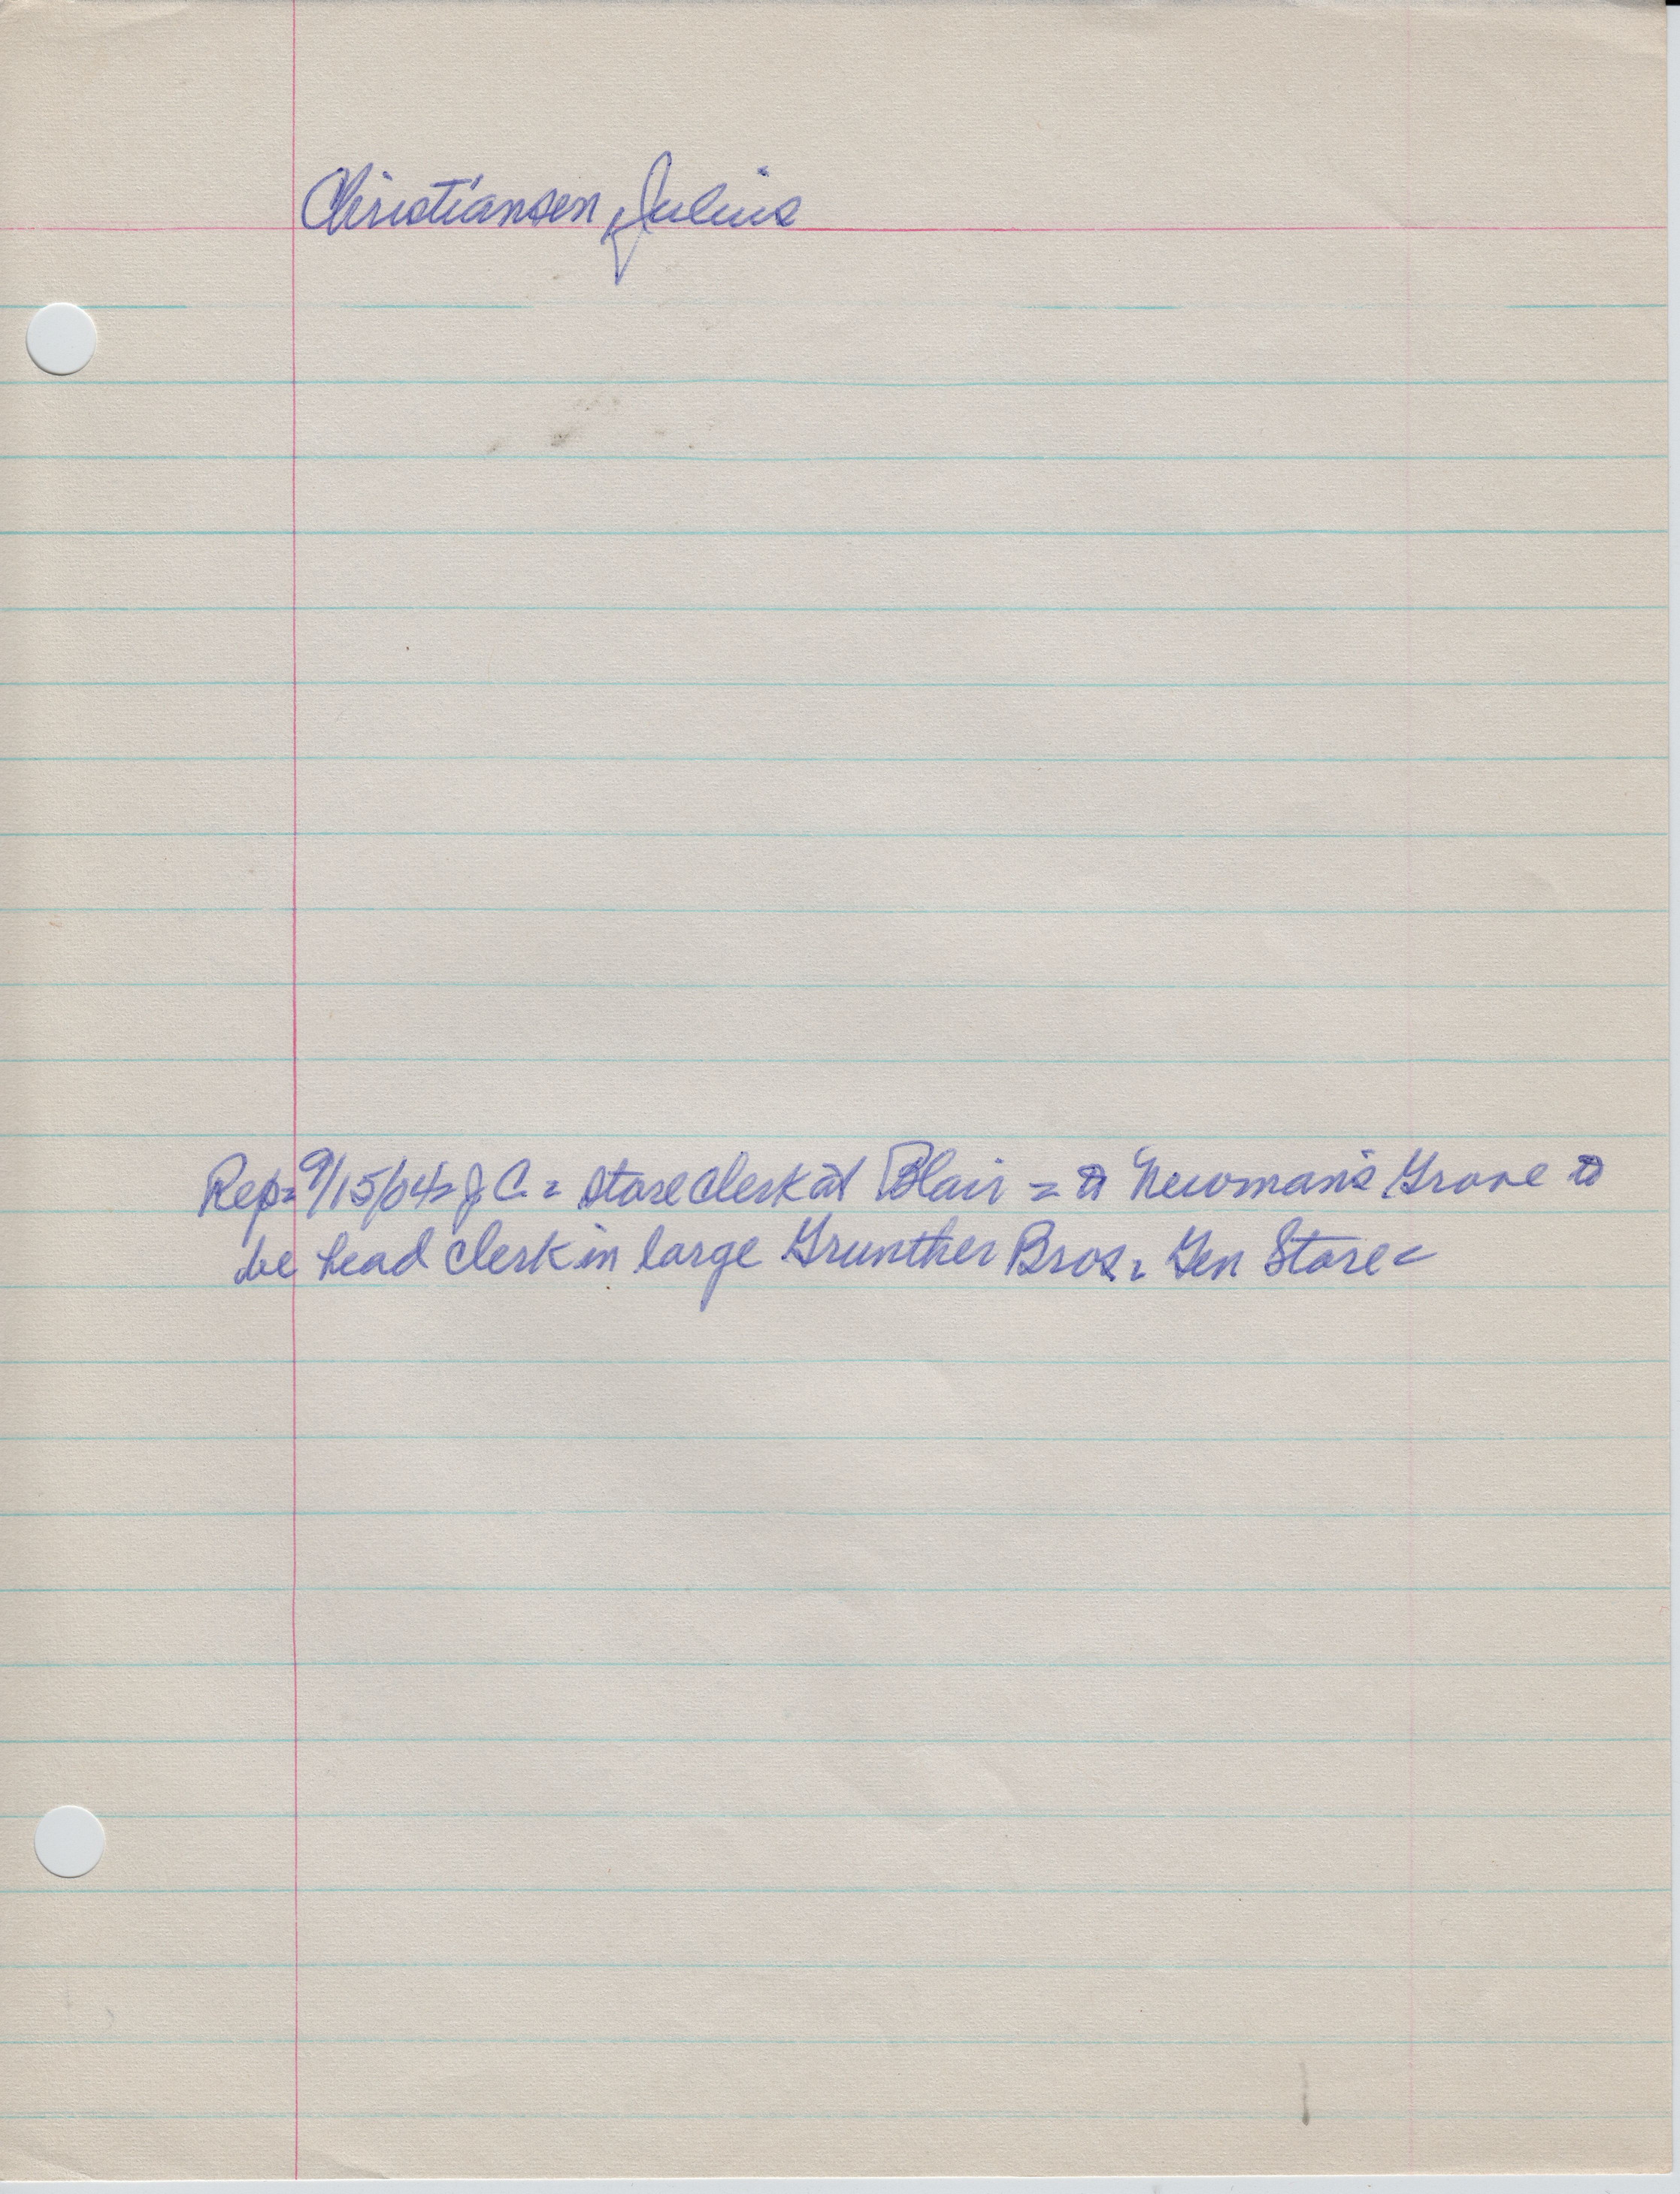 Christiansen, Julius
Rep= 9/15/04= J. C. = store clerk at Blair = to Newman's Grove to
be head clerk in large Grunther Bros. Gen Store=